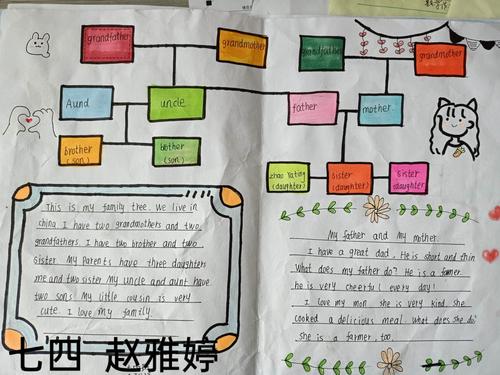 grandfather
grandmother
grandfather
grandmother
Aund
uncle
father
mother
brother
(son)
bother
(son)
zhao Yating
(daughter)
sister
(daughter)
sister
(daughter)
This is my family tree. We live in
china I have two grandmothers and two
grandfathers. I have two brother and two
sister My parents have three daughters
me and two sister My uncle and aunt have
two sons My little cousin is very
cute. I love my family
My father and My mother
I have a great dad. He is short and thin
What does my father do? He is a farmer.
he is very cheerful every day!
I love my mon she is very kind. She
cooked a delicious meal. what does she do?
she is a farmer, too.
七四 赵雅婷